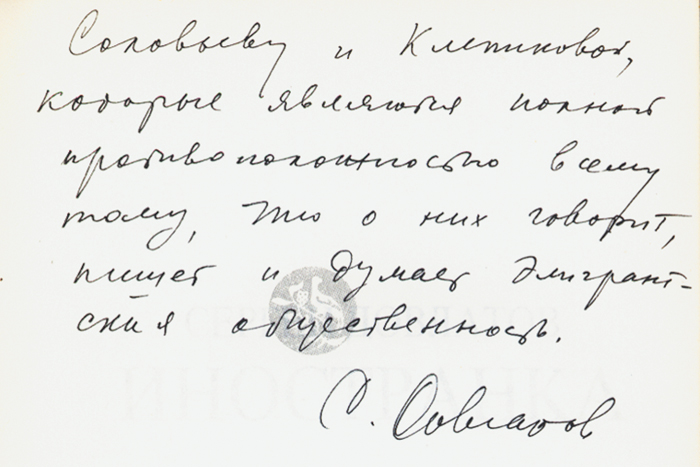 Соловьеву и Клепиковой,
которые являются полной
противоположностью всему
тому, что о них говорит,
пишет и думает эмигрант-
ская общественность.
С. Довлатов
СЕРГЕЙ ДОВЛАТОВ
ИНОСТРАНКА